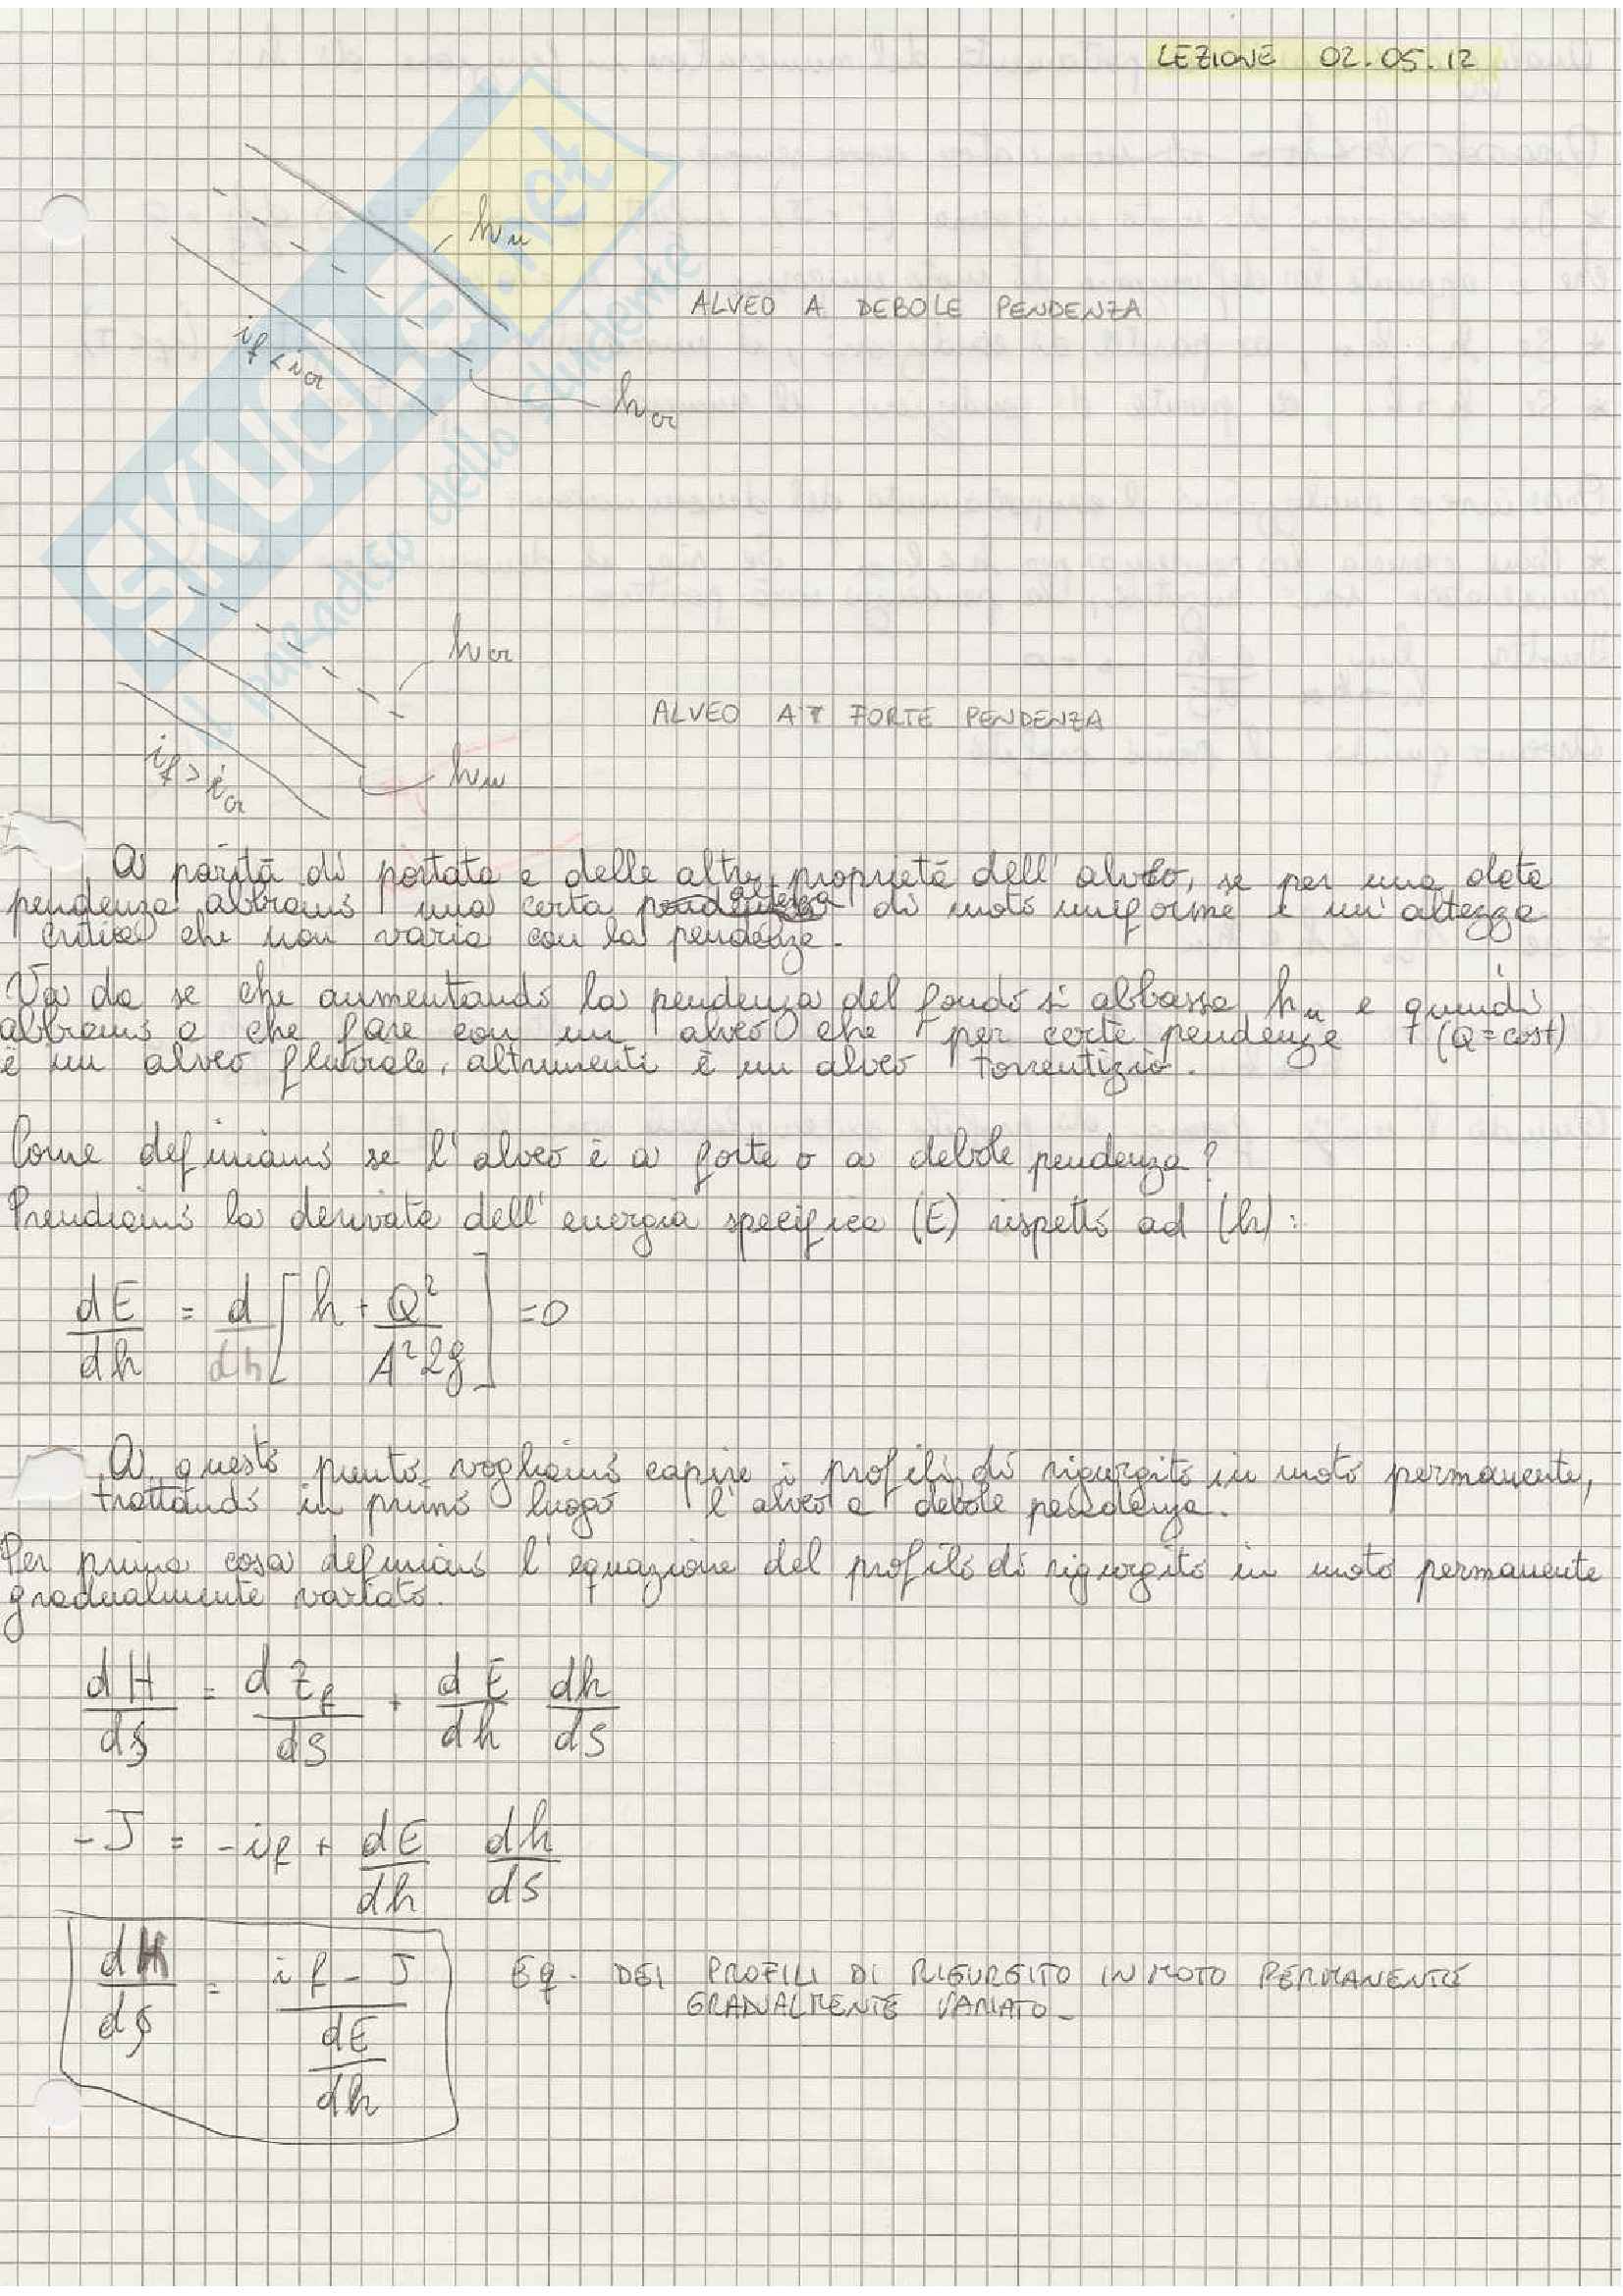 LEZIONE 02.05.12
SKUOLA.net
il paradiso dello studente
hu
ALVEO A DEBOLE PENDENZA
if < icr
hcr
hcr
ALVEO A FORTE PENDENZA
if > icr
hu
A parità di portata e delle altre proprietà dell'alveo, se per una data
pendenza abbiamo una certa altezza di moto uniforme e un'altezza
critica che non varia con la pendenza.
Va da se che aumentando la pendenza del fondo si abbassa hu e quindi
abbiamo a che fare con un alveo che per certe pendenze (Q=cost)
è un alveo fluviale, altrimenti è un alveo torrentizio.
Come definiamo se l'alveo è a forte o a debole pendenza?
Prendiamo la derivata dell'energia specifica (E) rispetto ad (h):
dE/dh = d/dh [h + Q²/A²2g] = 0
A questo punto vogliamo capire i profili di rigurgito in moto permanente,
trattando in primo luogo l'alveo a debole pendenza.
Per prima cosa definiamo l'equazione del profilo di rigurgito in moto permanente
gradualmente variato.
dH/ds = dzf/ds + dE/dh dh/ds
-J = -if + dE/dh dh/ds
dh/ds = if - J / dE/dh EQ. DEI PROFILI DI RIGURGITO IN MOTO PERMANENTE
GRADUALMENTE VARIATO.